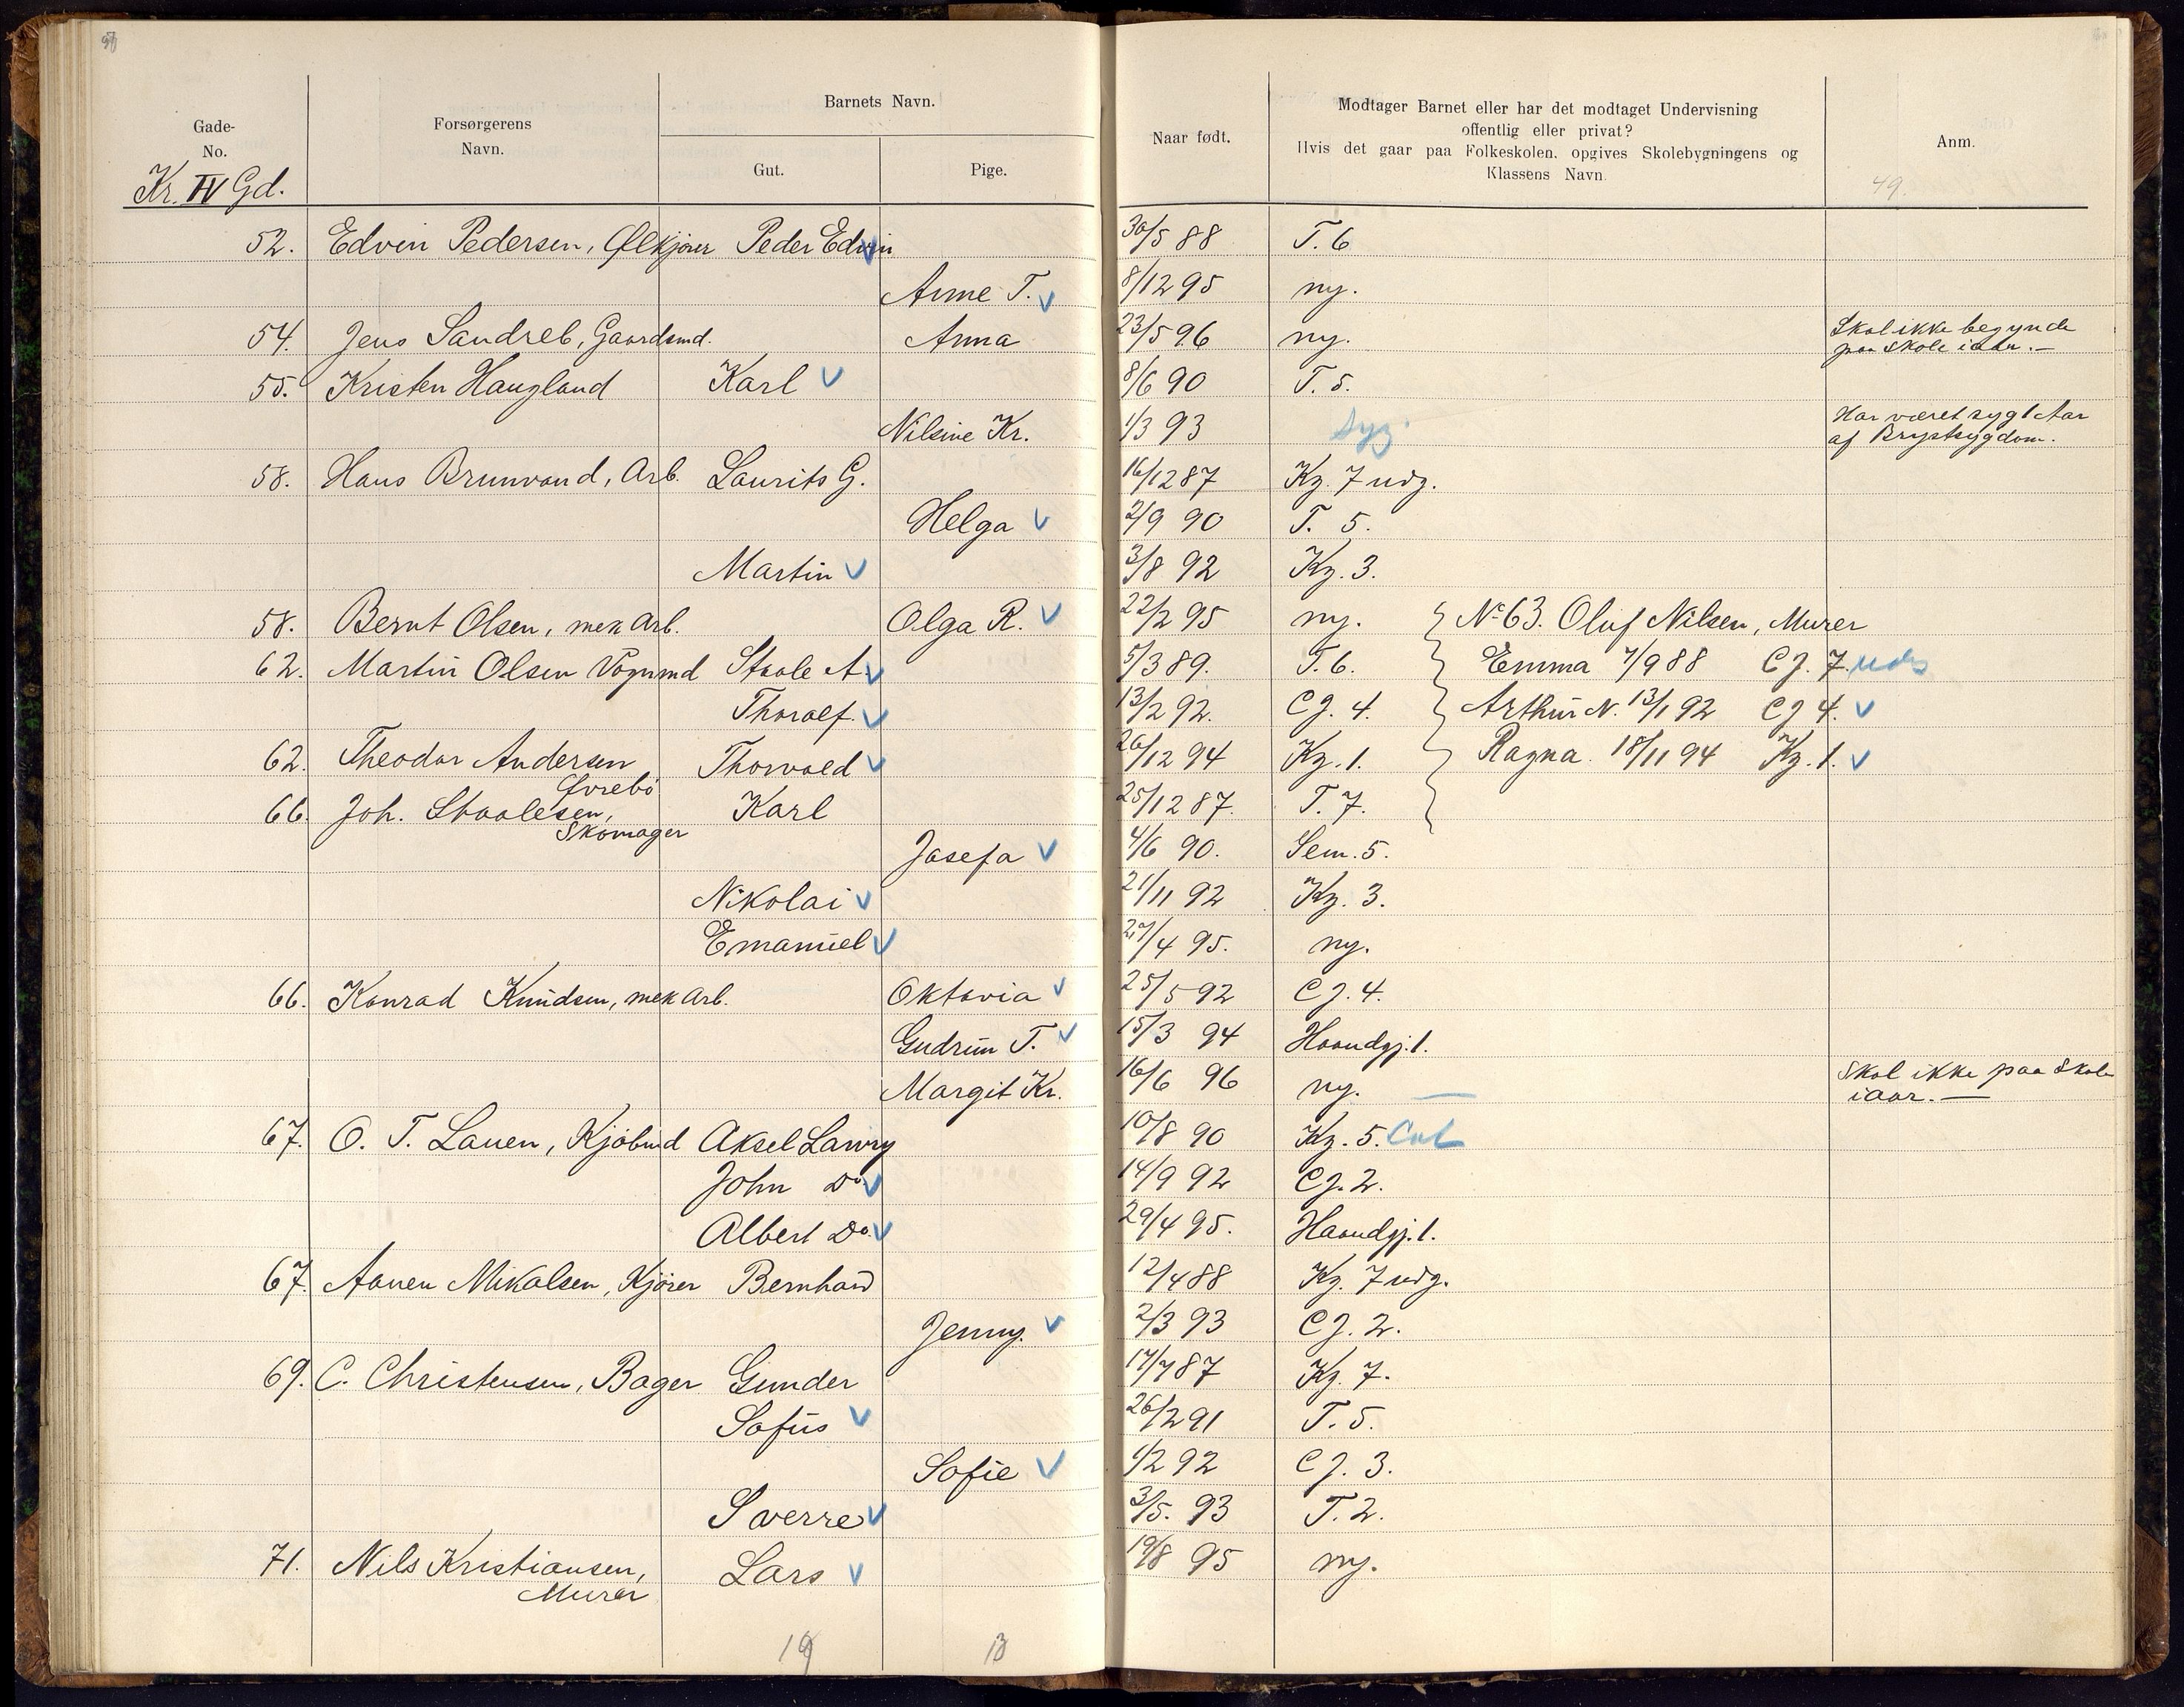 Gade-
No.
Forsørgerens
Navn.
Barnets Navn.
Gut.
Pige.
Naar født.
Modtager Barnet eller har det modtaget Undervisning
offentlig eller privat?
Hvis det gaar paa Folkeskolen, opgives Skolebygningens og
Klassens Navn.
Anm.
Kr. IV Gd.
49.
52. Edvin Pedersen, Ølkjører Peder Edvin 30/5 88 T. 6
Anne T. 8/12 95 ny.
54. Jens Sandreb, Gaardsmd. Anna 23/5 96 ny. Skal ikke begynde
paa Skole iaar.—
55. Kristen Haugland Karl 8/6 90 T. 5.
Nilsine Kr. 1/3 93 syg. Har været syg 1 Aar
af Brystsygdom.
58. Hans Brunvand, Arb. Laurits G. 16/12 87 Kz. 7 udg.
Helga 2/9 90 T. 5.
Martin 3/8 92 Kz. 3.
58. Bernt Olsen, mek Arb. Olga R. 22/2 95 ny. No 63. Oluf Nilsen, Murer
62. Martin Olsen Vognmd Staale A. 5/3 89. T. 6. Emma 7/9 88 CJ. 7. uds
Thoralf. 13/2 92. CJ. 4. Arthur N. 13/1 92 CJ 4.
62. Theodor Andersen
Øvrebö Thorvald 26/12 94 Kz. 1. Ragna 18/11 94 Kz. 1.
66. Joh. Staalesen,
Skomager Karl 25/12 87. T. 7.
Josefa 4/6 90. Sem. 5.
Nikolai 21/11 92 Kz. 3.
Emanuel 27/4 95. ny.
66. Konrad Knudsen, mek Arb. Oktavia 25/5 92 CJ. 4.
Gudrun T. 15/3 94 Haandgj. 1.
Margit Kr. 16/6 96 ny. Skal ikke paa Skole
iaar.—
67. O. T. Lauen, Kjöbmd Aksel Lawry 10/8 90 Kz. 5. Cat
John Do 14/9 92 CJ. 2.
Albert Do. 29/4 95. Haandgj. 1.
67. Aanen Mikalsen, Kjörer Bernhard 12/4 88 Kz. 7 udg.
Jenny. 2/3 93 CJ. 2.
69. C. Christensen, Bager Gunder 17/7 87 Kz. 7.
Sofus 26/2 91 T. 5.
Sofie 1/2 92 CJ. 3.
Sverre 3/5. 93 T. 2.
71. Nils Kristiansen,
Murer Lars 19/8 95 ny.
19 13